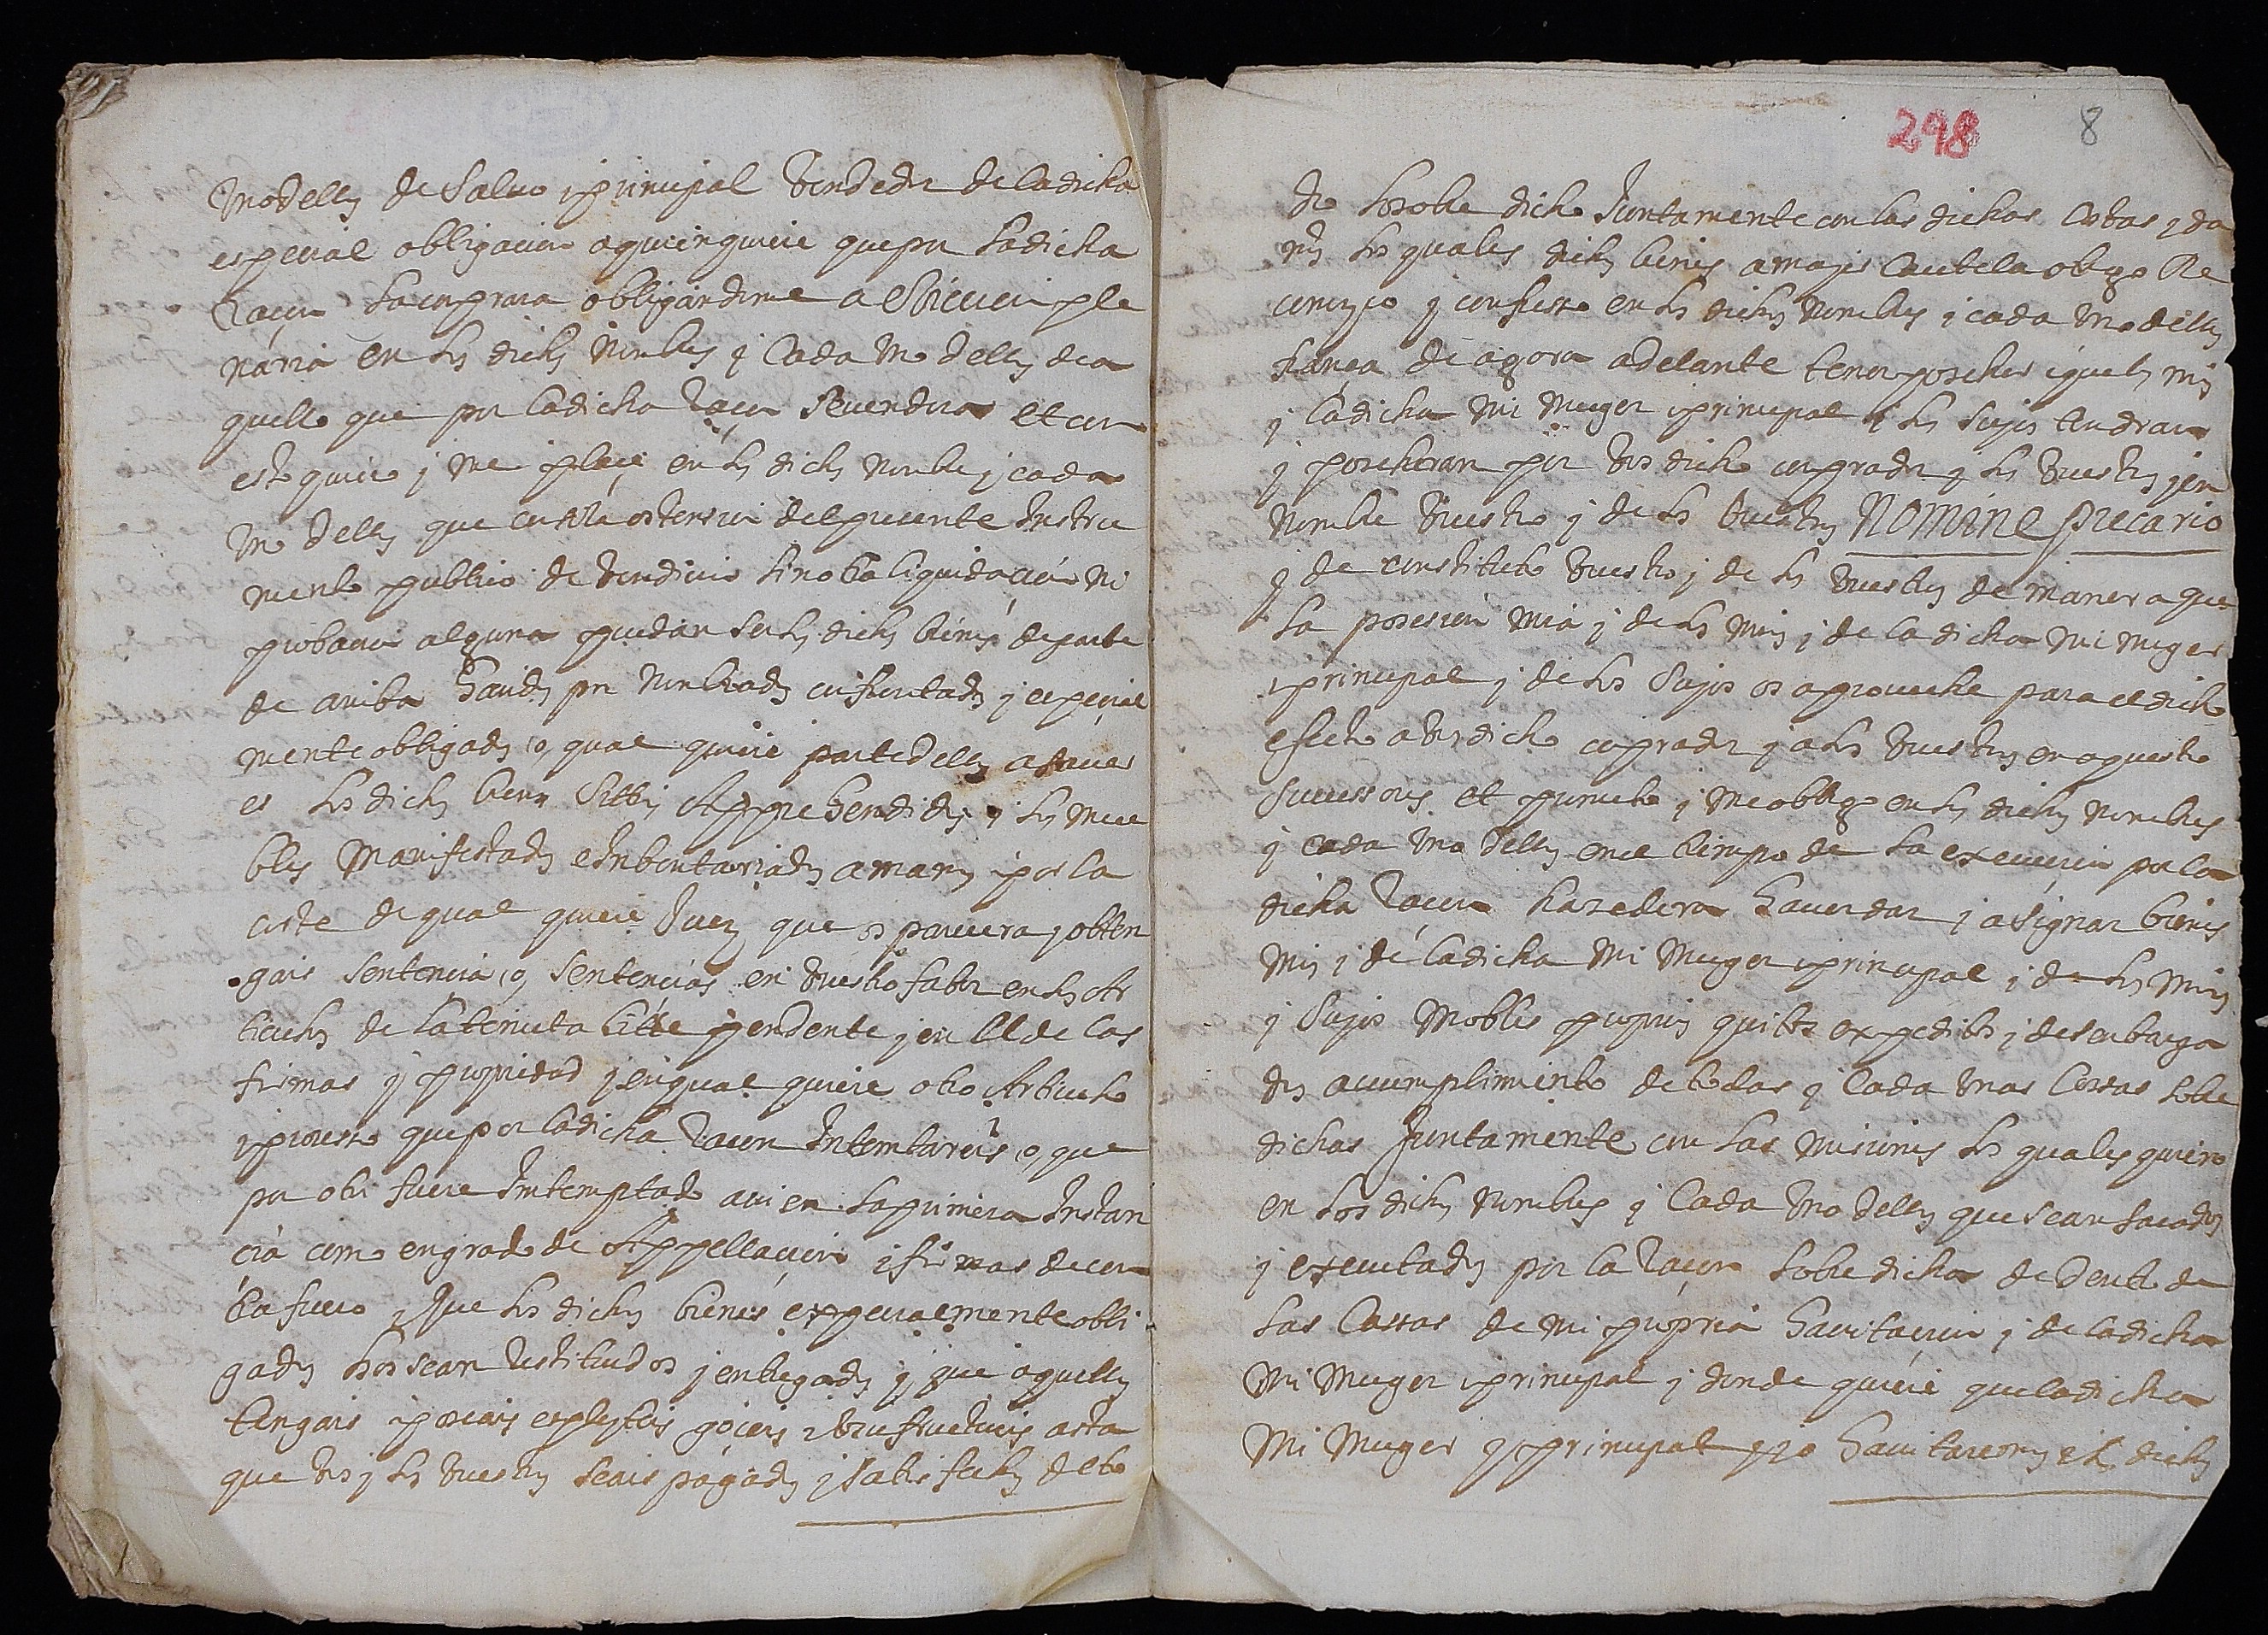 Uno dellos de Salvo y principal vendedor de la dicha
especial obligacion a quien quiere que por la dicha
raçon la comprara obligandome a Eviccion ple
naria en los dichos nombres y Cada uno dellos de a
quello que por la dicha raçon se vendera et con
esto quiero y me place en los dichos nombres y cada
uno dellos que con sola ostension del presente Instru
mento publico de vendicion sin otra liquidacion ni
probacion alguna puedan ser los dichos bienes de parte
de arriba Havidos por nombrados confrontados y especial
mente obligados o, qual quiere parte dellos a saver
es los dichos bienes Sittios Apprehendidos y los mue
bles Manifestados e Inbentariados a manos y por la
corte de qual quiere Juez que os parecera y obten
gais sentencia, o, sentencias en vuestro fabor en los Ar
ticulos de la tenuta Litte pendente y en El de las
firmas y propiedad y en qual quiere otro Articulo
y processo que por la dicha raçon Intentareis, o, que
por otri fuere Intemptado assi en la primera Instan
cia como en grado de Appellacion y firmas de con
tra fuero y Que los dichos bienes especialmente obli
gados Los sean restituidos y entregados y que aquellos
tengais y poseais expleyteis goceis y usufructueis asta
que vos y los vuestros seais pagados y satisfechos de to
298 8
do lo sobre dicho Juntamente con las dichas Costas y da
nos los quales dichos bienes a mayor Cautela otorgo Re
conozco y confiesso en los dichos nombres y cada uno dellos
de agora adelante tener y posehir y que los mios
y la dicha Mi Muger y principal y los suyos tendran
y posehiran por vos dicho comprador y los vuestros y en
nombre vuestro y de los vuestros Nomine precario
y de constituto vuestro y de los vuestros de manera que
la posesion mia y de los mios y de la dicha Mi Muger
y principal y de los Suyos os aproveche para el dicho
efecto a vos dicho comprador y a los vuestros en aquesto
Successores et prometo y me obligo en los dichos nombres
y cada uno dellos en el tiempo de la execucion por la
dicha raçon hazedera Haver dar y asignar bienes
Mios y de la dicha Mi Muger y principal y de los Mios
y Suyos Mobles propios quitos expeditos y desenbarga
dos a cumplimiento de todas y Cada unas Cossas sobre
dichas Juntamente con las misiones los quales quiero
en los dichos nombres y Cada uno dellos que sean sacados
y executados por la raçon sobre dicha de dentro de
las Cassas de mi propria Havitacion y de la dicha
Mi Muger y principal y donde quiere que la dicha
Mi Muger y principal y yo Havitaremos et los dichos